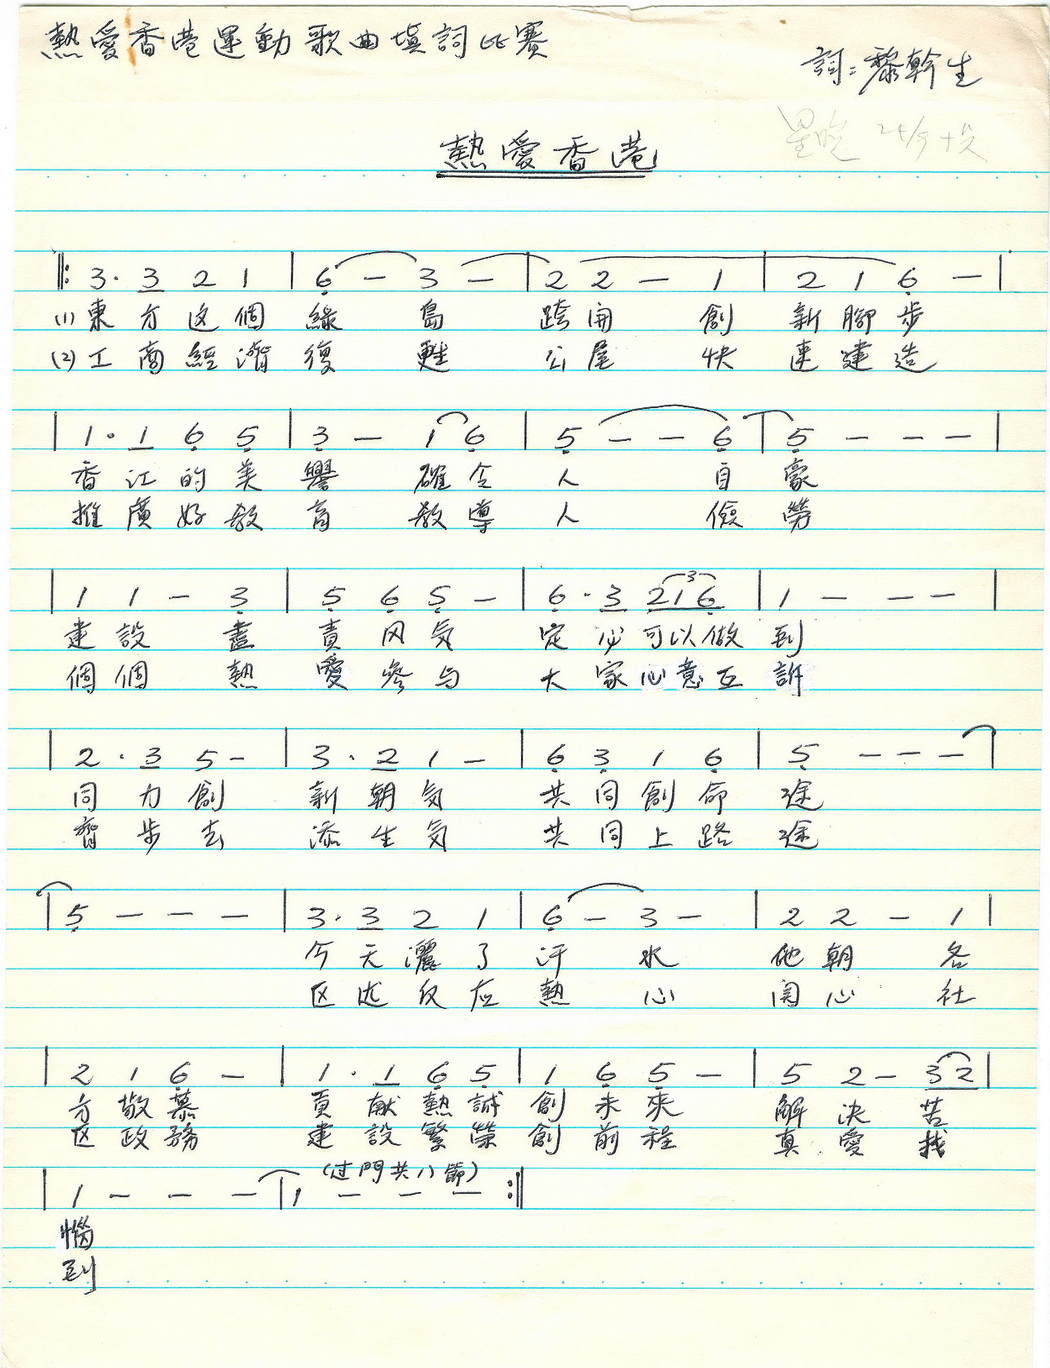 熱愛香港運動歌曲填詞比賽
詞：黎幹生
熱愛香港
‖: 3· 3 2 1 | 6 – 3 – | 2 2 – 1 | 2 1 6 – |
(1) 東方这個綠島 跨開創新腳步
(2) 工商經濟復甦 公屋快速建造
| 1· 1 6 5 | 3 – 1 6 | 5 – – 6 | 5 – – – |
香江的美譽確令人自豪
推廣好教育教導人儉勞
| 1 1 – 3 | 5 6 5 – | 6· 3 2 1 6 | 1 – – – |
3
建設盡責风気定必可以做到
個個熱愛參与大家心意互訴
| 2· 3 5 – | 3· 2 1 – | 6 3 1 6 | 5 – – – |
同力創新朝気共同創命途
齊步去添生気共同上路途
| 5 – – – | 3· 3 2 1 | 6 – 3 – | 2 2 – 1 |
今天灑了汗水他朝各
区述仅应熱心開心社
| 2 1 6 – | 1· 1 6 5 | 1 6 5 – | 5 2 – 3 2 |
方敬慕貢献熱誠創未來解決苦
区政務建設繁榮創前程真愛找
(过門共八節)
| 1 – – – | 1 – – – :‖
惱
到